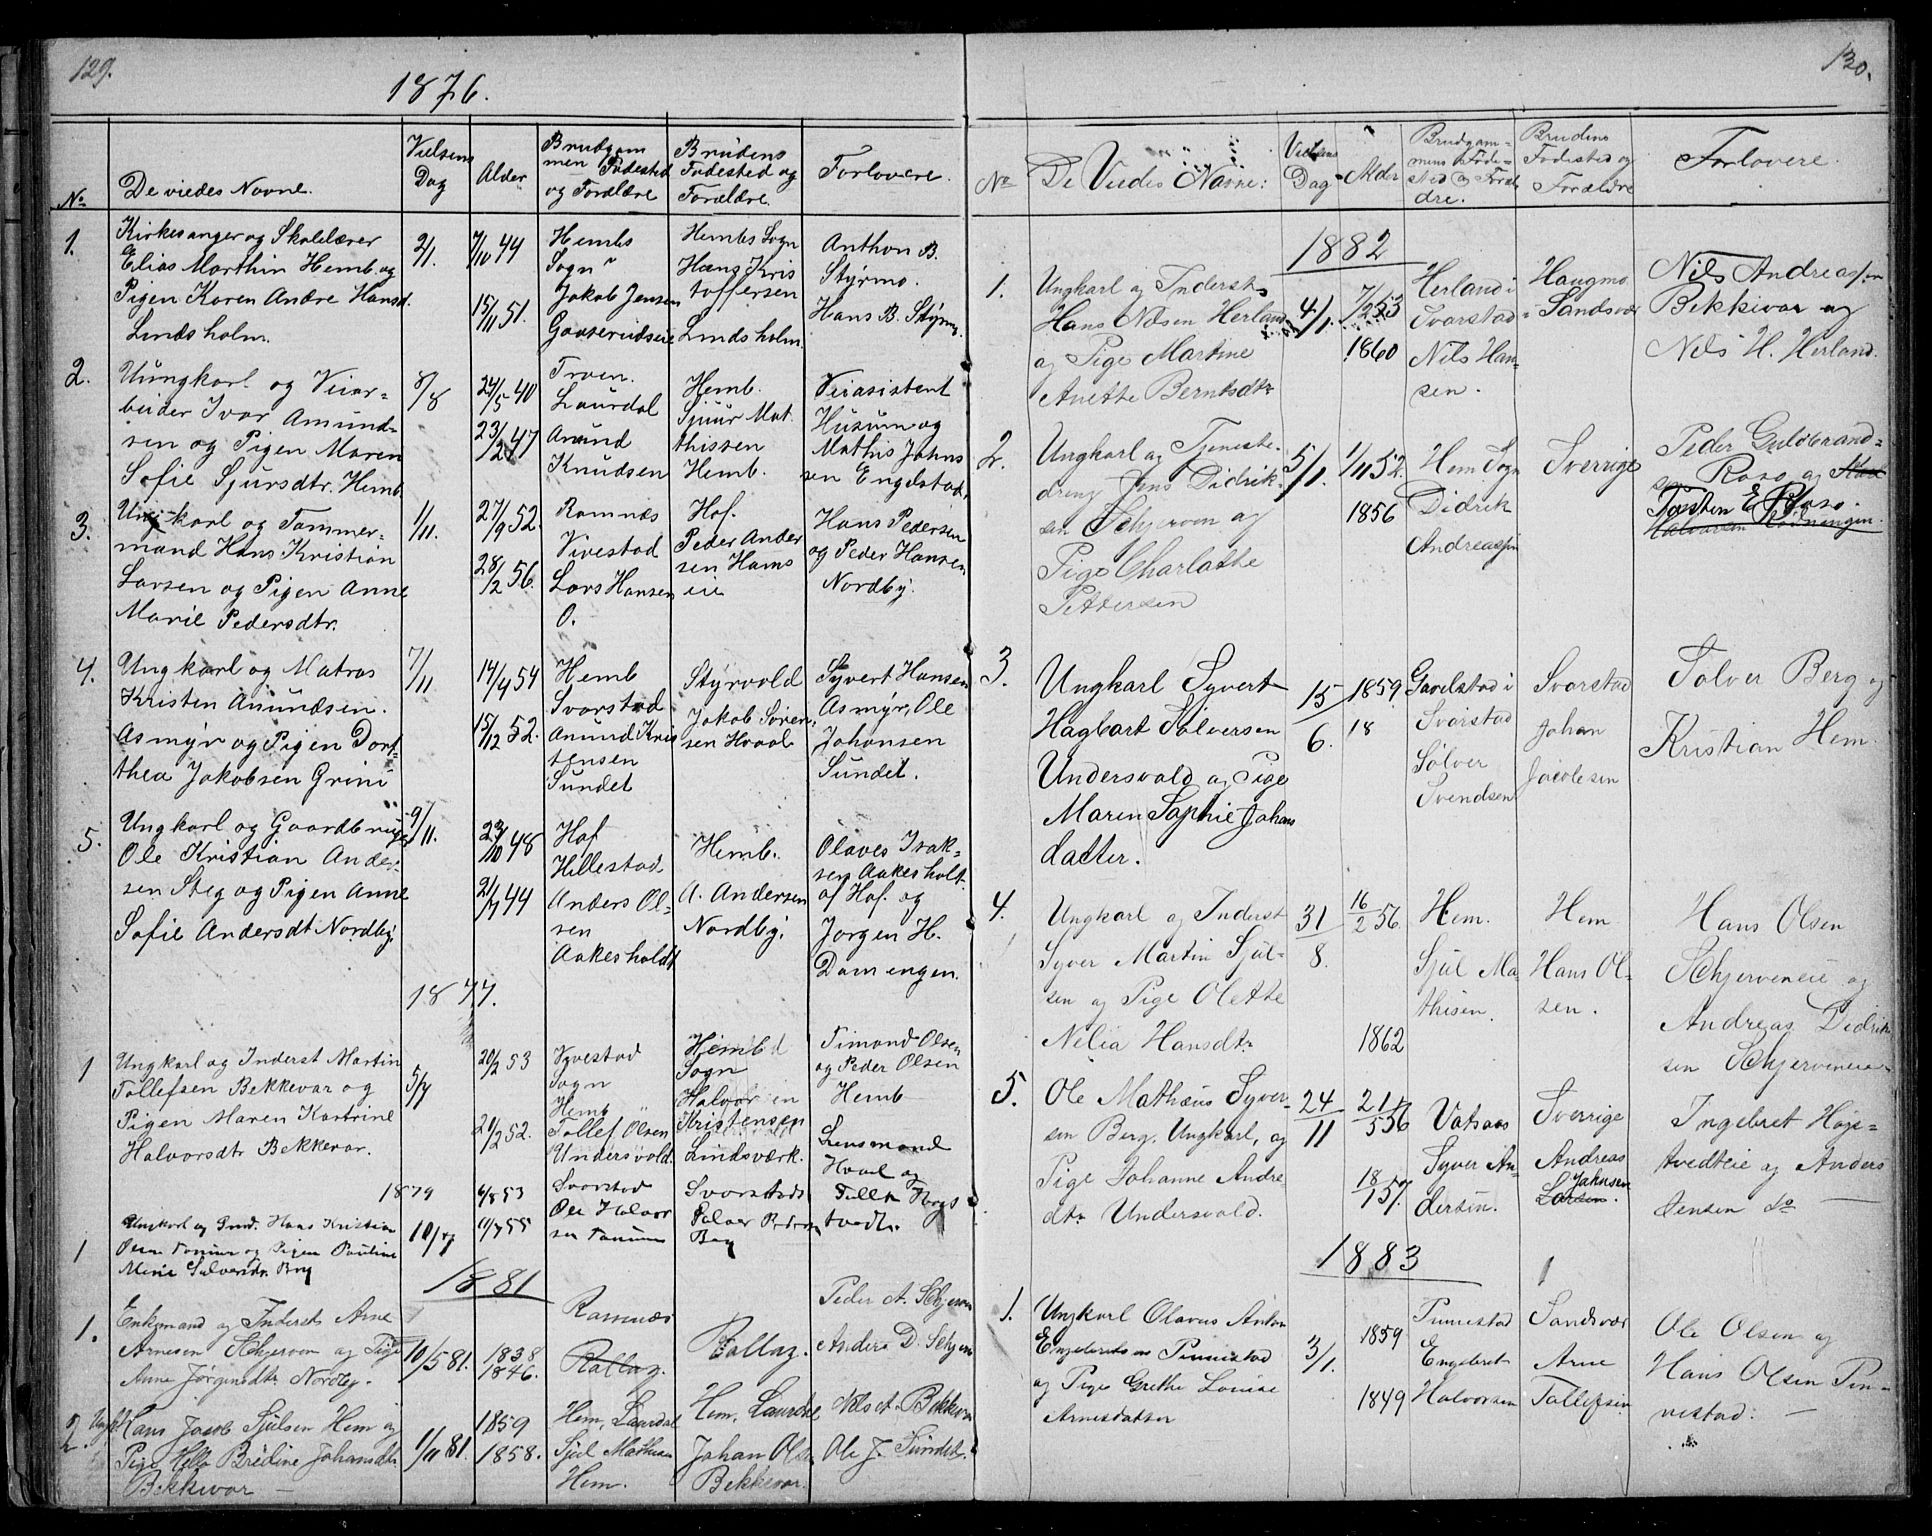 129.
1876.
No
De viedes Navne.
Vielsens
Dag
Alder
Brudgom
men Fødested
og Forældre
Brudens
Fødested og
Forældre.
Forlovere.
1.
Kirkesanger og Skolelærer
Elias Marthin Hemb. og
Pigen Karen Andre Hansd.
Lindsholm.
2/1.
7/10 44
15/11 51.
Hembs
Sogn
Jakob Jensen
Hembs Sogn
Hans Kris
toffersen
Lindsholm.
Anthon B.
Styrmo.
Hans B. Styrmo.
2.
Ungkarl og Veiar-
beider Ivar Amund-
sen og Pigen Maren
Sofie Sjursdtr. Hemb
8/8
24/5 40
23/2 47
Troen.
Laurdal
Amund
Knudsen
Hemb.
Sjuur Mat
thissen
Hemb.
Veiasistent
Husum og
Mathis Johns
sen Engelstad.
3.
Ungkarl og Tømmer-
mand Hans Kristian
Larsen og Pigen Anne
Marie Pedersdtr.
1/11.
27/9 52.
28/2 56.
Ramnæs
Vivestad
Lars Hansen
O.
Hof.
Peder Ander
sen Hams
eie
Hans Pedersen
og Peder Hansen
Nordby.
4.
Ung karl og Matros
Kristen Amundsen.
Asmyr og Pigen Dort-
thea Jakobsen Grini
7/11
14/4 54
15/12 52.
Hemb
Svarstad
Amund Kris
tensen
Sundet
Styrvold
Jakob Søren
sen Hvaal
Syvert Hansen
Asmyr, Ole
Johansen
Sundet.
5.
Ungkarl og Gaardbruger
Ole Kristian Ander-
sen Steg og Pigen Anne
Sofie Andersdt Nordby.
9/11.
23/10 48
2/7 44
Hof
Hillestad.
Anders Ol-
sen
Aakesholdt
Hemb.
A. Andersen
Nordby.
Olaves Isak-
sen Aakesholt
af Hof. og
Jorgen H.
Domengen.
1877.
1
Ungkarl og Inderst Martin
Tollefsen Bekkevar og
Pigen Maren Kartrine
Halvorsdtr Bekkevar.
5/7
20/2 53
20/2 52.
Vivestad
Sogn
Hemb
Tollef Olsen
Undersvold.
Hemb
Sogn
Halvor
Kristensen
Lindsværk.
Timand Olsen
og Peder Olsen
Hemb
1879
1
Ungkarl og Hans Kristian
og Pigen Pauline
Marie Sølversdr. Berg
10/7
4/8 53
11/7 55
Svarstad
Ole Halvor
sen
Svarstad
Sølver Peders
Berg
Lensmand
Hvaal og
1881
1.
Enkemand og Inderst Arne
Arnesen Schjerven og Pige
Anne Jørgensdtr Nordby.
10/5 81.
1838
1846.
Ramnæs
Rollag.
Rollag.
Peder A. Schjerven
Anders D. Schjerv
2.
Ungkl.
Hans Jacob Sjulsen Hem og
Pige Brédine Johansdtr
Bekkevar —
1/11 81.
1859
1858.
Hem, Laurdal
Sjul Mathisen
Hem.
Hem, Laurdal
Johan Olsen
Bekkevar.
Nils A. Bekkevar
Ole J. Sundet.
130.
No
De Viedes Navne:
Vielses
Dag
Alder
Brudgom-
mens Føde-
sted og Foræl-
dre.
Brudens
Fødested og
Forældre
Forlovere.
1882
1.
Ungkarl og Inderst
Hans Nilsen Herland
og Pige Martine
Anette Berntsdtr
4/1.
7/2 53
1860
Herland i
Svarstad
Nils Han-
sen.
Haugmo
Sandsvær
Nils Andreassen
Bekkivar og
Nils H. Herland.
2.
Ungkarl og Tjeneste-
dreng Jens Didrik-
sen Schjerven og
Pige Charlotte
Pettersen
5/1.
1/11 52.
1856
Hem Sogn
Didrik
Andreassen
Sverrige
Peder Guldbrand-
sen Raso og
Tosten E. Raso.
3.
Ungkarl Syvert
Hagbart Sølversen
Undersvold og Pige
Maren Sophie Johans
datter.
15/6.
1859
18
Gavelstad i
Svarstad
Sølver
Svendsen
Svarstad
Johan
Jacobsen
Sølver Berg og
Kristian Hem.
4.
Ungkarl og Inderst
Syver Martin Sjul-
sen og Pige Olette
Nelia Hansdtr
31/8.
16/2 56
1862
Hem.
Sjul Ma-
thisen.
Hem
Hans Ol-
sen.
Hans Olsen
Schjerveneie og
Andreas Didrik
sen Schjerveneie
5.
Ole Mathæus Syver-
sen Berg. Ungkarl, og
Pige Johanne Andre-
dtr Undersvold.
24/11
21/5 56
18/1 57.
Vatsaas
Syver An-
dersen.
Sverrige
Andreas
Jakobsen
Larsen.
Ingebret Høje-
tvedteie og Anders
Jensen do
1883
1.
Ungkarl Olavus Anton
Engebretsen Pinnestad
og Pige Grethe Louise
Arnesdatter
3/1.
1859
1849
Pinnestad
Engebret
Halvorsen
Sandsvær
Arne
Tollefsen
Ole Olsen og
Hans Olsen Pin-
nestad. —